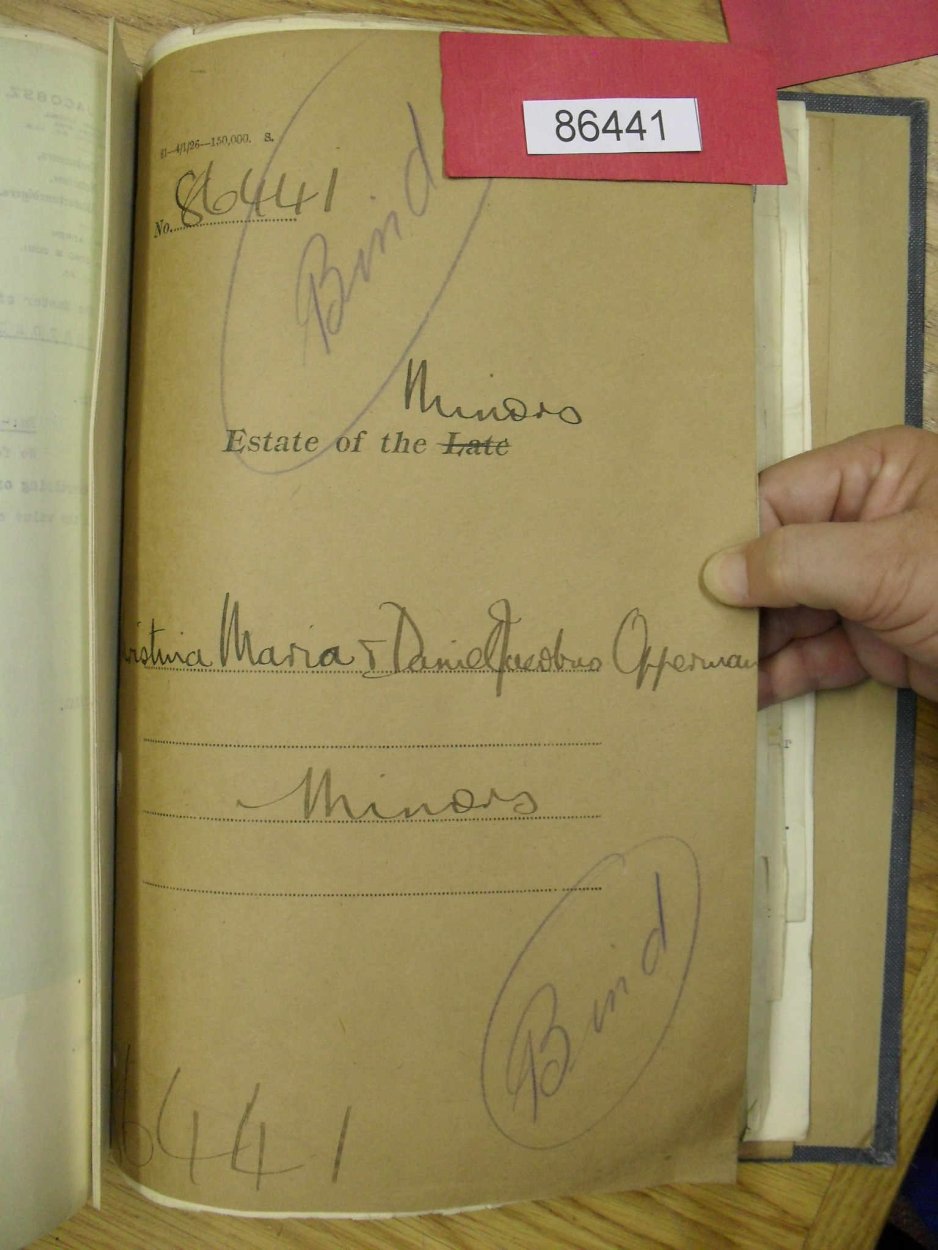 86441
21—4/1/26—150,000. S.
No. 86441
Bind
Minors
Estate of the Late
ristina Maria & Daniel Jacobus Opperman
Minors
Bind
6441